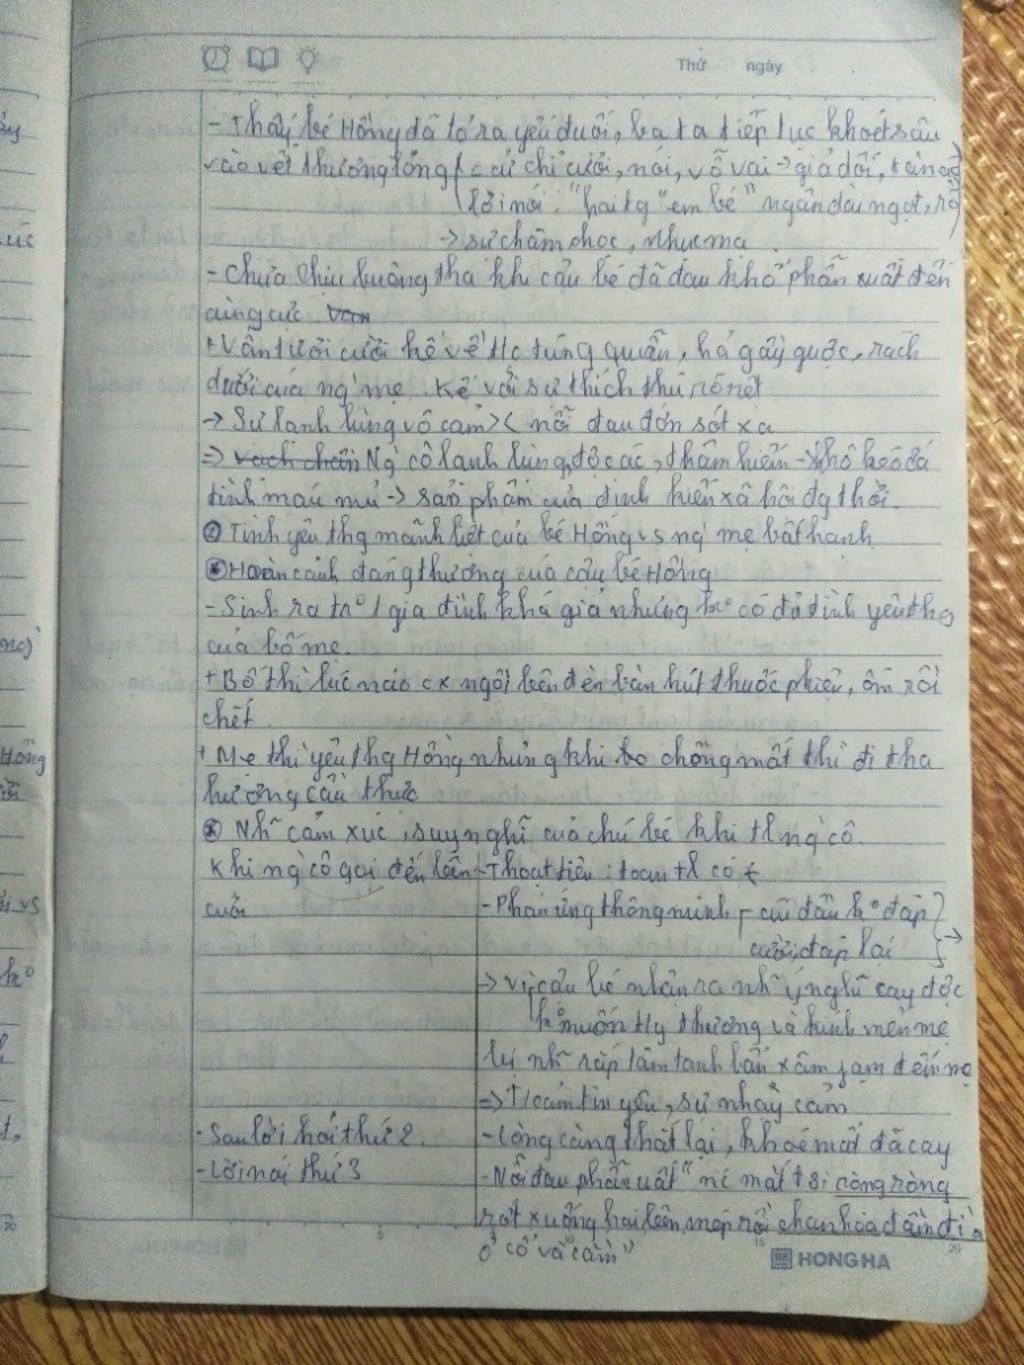 Thứ ngày
- Thấy bé Hồng đã tỏ ra yếu đuối, bà ta tiếp tục khoét sâu
vào vết thương lòng ( cử chỉ cười, nói, vỗ vai → giả dối,
lời nói: "hai tg "em bé" ngân dài ngọt, rõ
→ sự châm chọc, nhục mạ
- Chưa chịu buông tha khi cậu bé đã đau khổ phẫn uất đến
cùng cực
+ Vẫn tươi cười kể về túng quẫn, hả gầy guộc, rách
dưới của ng' mẹ. Kể với sự thích thú rõ rệt
→ Sự lạnh lùng vô cảm >< nỗi đau đớn sót xa
=> vạch chân Ng' cô lạnh lùng, độc ác, thâm hiểm → khô héo cả
tình máu mủ → sản phẩm của định kiến xã hội đg thời.
② Tình yêu thg mãnh liệt của bé Hồng vs ng' mẹ bất hạnh
* Hoàn cảnh đáng thương của cậu bé Hồng
- Sinh ra tr° 1 gia đình khá giả nhưng k° có đủ tình yêu thg
của bố mẹ.
+ Bố thì lúc nào cx ngồi bên đèn bàn hút thuốc phiện, ốm rồi
chết.
+ Mẹ thì yêu thg Hồng nhưng khi chồng mất thì đi tha
hương cầu thực
* Nh~ cảm xúc, suy nghĩ của chú bé khi tl ng' cô.
Khi ng' cô gọi đến bên
cười
- Thoạt tiên: toan tl có
- Phản ứng thông minh cúi đầu k° đáp
cười đáp lại
→ Vì cậu bé nhận ra nh~ ý nghĩ cay độc
k° muốn thương và kính mến mẹ
bị nh~ rắp tâm tanh bẩn xâm phạm đến mẹ
=> tin yêu, sự nhạy cảm
- Sau lời hỏi thứ 2.
- Lòng càng thắt lại, khoé mắt đã cay
- Lời nói thứ 3
- Nỗi đau phẫn uất "nc mắt ròng ròng
rớt xuống hai bên mép rồi chan hòa đầm đìa
ở cổ và cằm"
HONG HA